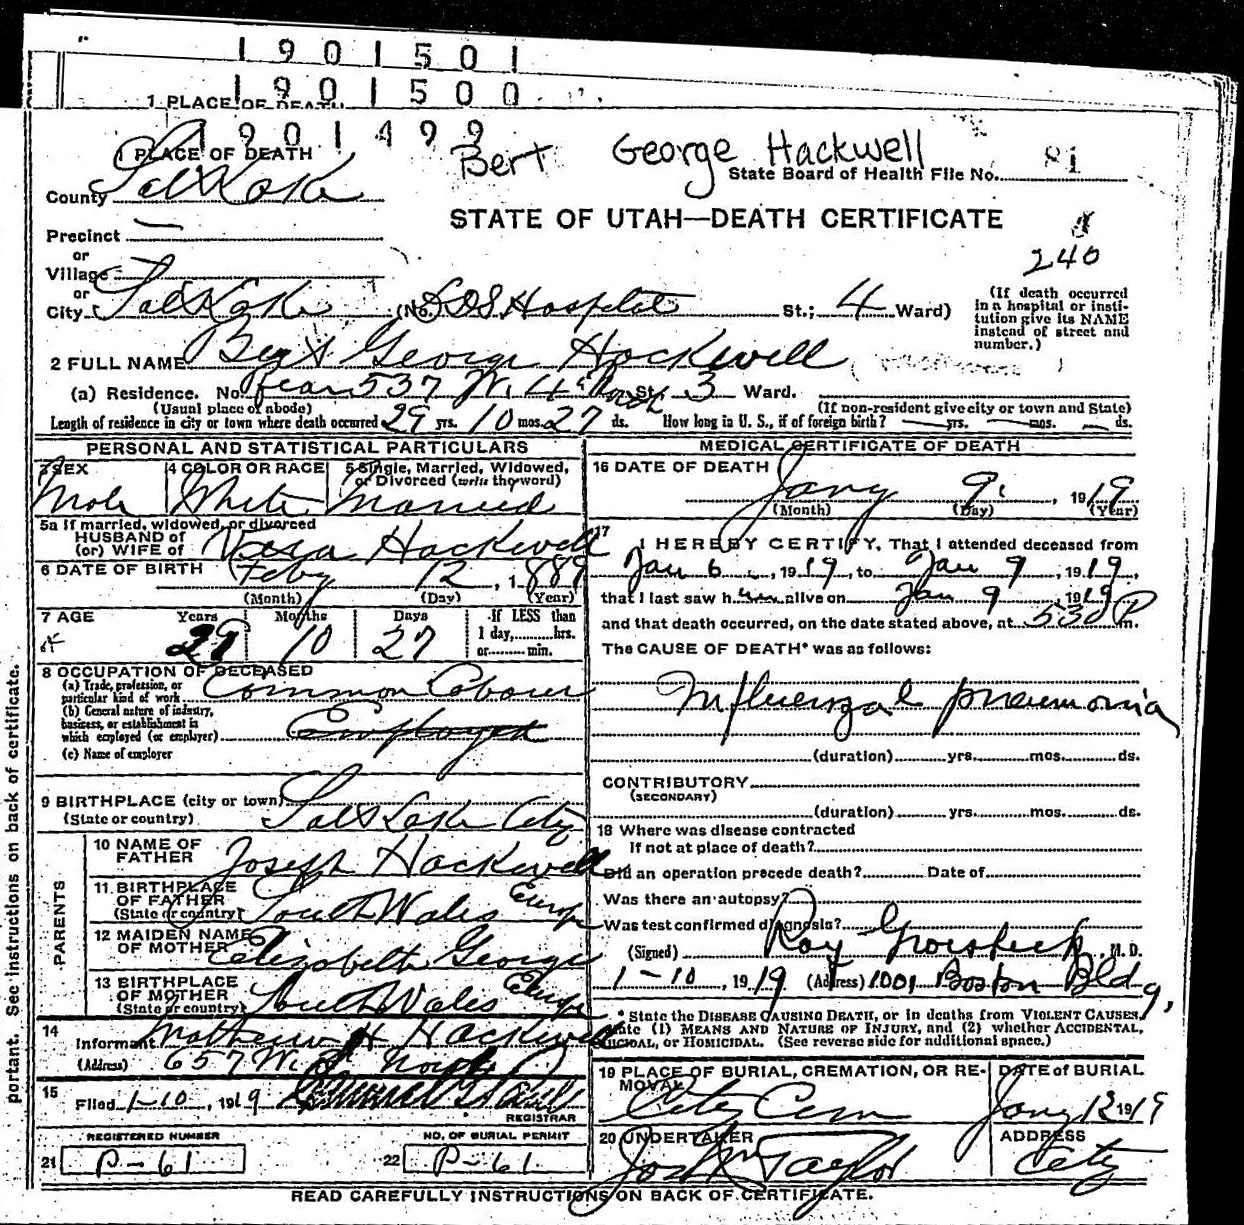 1901501
1901500
1 PLACE OF DEATH
1901499
1 PLACE OF DEATH
Bert George Hackwell
State Board of Health File No. 81
County Salt Lake
STATE OF UTAH—DEATH CERTIFICATE
Precinct
240
or
Village
or
City Salt Lake (No. LDS Hospital St.; 4 Ward)
(If death occurred in a hospital or institution give its NAME instead of street and number.)
2 FULL NAME Bert George Hackwell
(a) Residence. No. rear 537 W. 4th North St. 3 Ward.
(Usual place of abode) (If non-resident give city or town and State)
Length of residence in city or town where death occurred 29 yrs. 10 mos. 27 ds. How long in U. S., if of foreign birth? yrs. mos. ds.
PERSONAL AND STATISTICAL PARTICULARS
3 SEX Male
4 COLOR OR RACE White
5 Single, Married, Widowed, or Divorced (write the word) Married
5a If married, widowed, or divorced
HUSBAND of
(or) WIFE of Hackwell
6 DATE OF BIRTH Feby 12, 1889
(Month) (Day) (Year)
7 AGE Years Months Days If LESS than
29 10 27 1 day, hrs.
or min.
8 OCCUPATION OF DECEASED
(a) Trade, profession, or particular kind of work Common Laborer
(b) General nature of industry, business, or establishment in which employed (or employer) Employed
(c) Name of employer
9 BIRTHPLACE (city or town) Salt Lake City
(State or country)
PARENTS
10 NAME OF FATHER Joseph Hackwell
11 BIRTHPLACE OF FATHER (State or country) South Wales Europe
12 MAIDEN NAME OF MOTHER Elizabeth George
13 BIRTHPLACE OF MOTHER (State or country) South Wales Europe
14 Informant Mathew H Hackwell
(Address) 657 W. North
15 Filed 1-10, 1919
REGISTRAR
REGISTERED NUMBER
21 P-61
NO. OF BURIAL PERMIT
22 P-61
MEDICAL CERTIFICATE OF DEATH
16 DATE OF DEATH Jany 9, 1919
(Month) (Day) (Year)
17 I HEREBY CERTIFY, That I attended deceased from
Jan 6, 1919, to Jan 9, 1919,
that I last saw him alive on Jan 9 1919
and that death occurred, on the date stated above, at 530 P m.
The CAUSE OF DEATH* was as follows:
Influenzal pneumonia
(duration) yrs. mos. ds.
CONTRIBUTORY
(SECONDARY)
(duration) yrs. mos. ds.
18 Where was disease contracted
If not at place of death?
Did an operation precede death? Date of
Was there an autopsy?
Was test confirmed diagnosis?
(Signed) Ray Groesbeck, M. D.
1-10, 1919 (Address) 1001 Boston Bldg,
* State the DISEASE CAUSING DEATH, or in deaths from VIOLENT CAUSES,
state (1) MEANS AND NATURE OF INJURY, and (2) whether ACCIDENTAL,
SUICIDAL, or HOMICIDAL. (See reverse side for additional space.)
19 PLACE OF BURIAL, CREMATION, OR REMOVAL City Cem
DATE of BURIAL Jany 12 1919
20 UNDERTAKER Jos Wm Taylor
ADDRESS City
READ CAREFULLY INSTRUCTIONS ON BACK OF CERTIFICATE.
portant. See instructions on back of certificate.